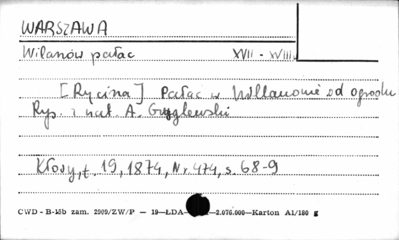 WARSZAWA
Wilanów pałac XVII - XVIII
[Rycina] Pałac w Willanowie od ogrodu
Rys. z nat. A. Gryglewski
Kłosy, t. 19, 1874, Nr 474, s. 68-9
CWD - B-15b zam. 2909/ZW/P — 19—ŁDA— —2.076.000—Karton A1/180 g